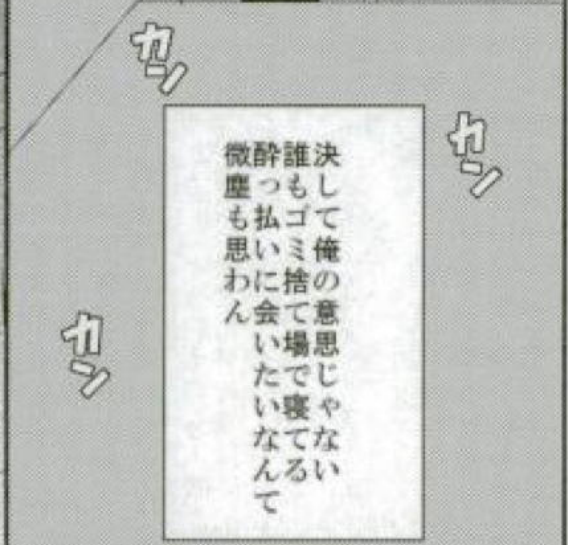 カン
カン
決して俺の意思じゃない
誰もゴミ捨て場で寝てる
酔っ払いに会いたいなんて
微塵も思わん
カン